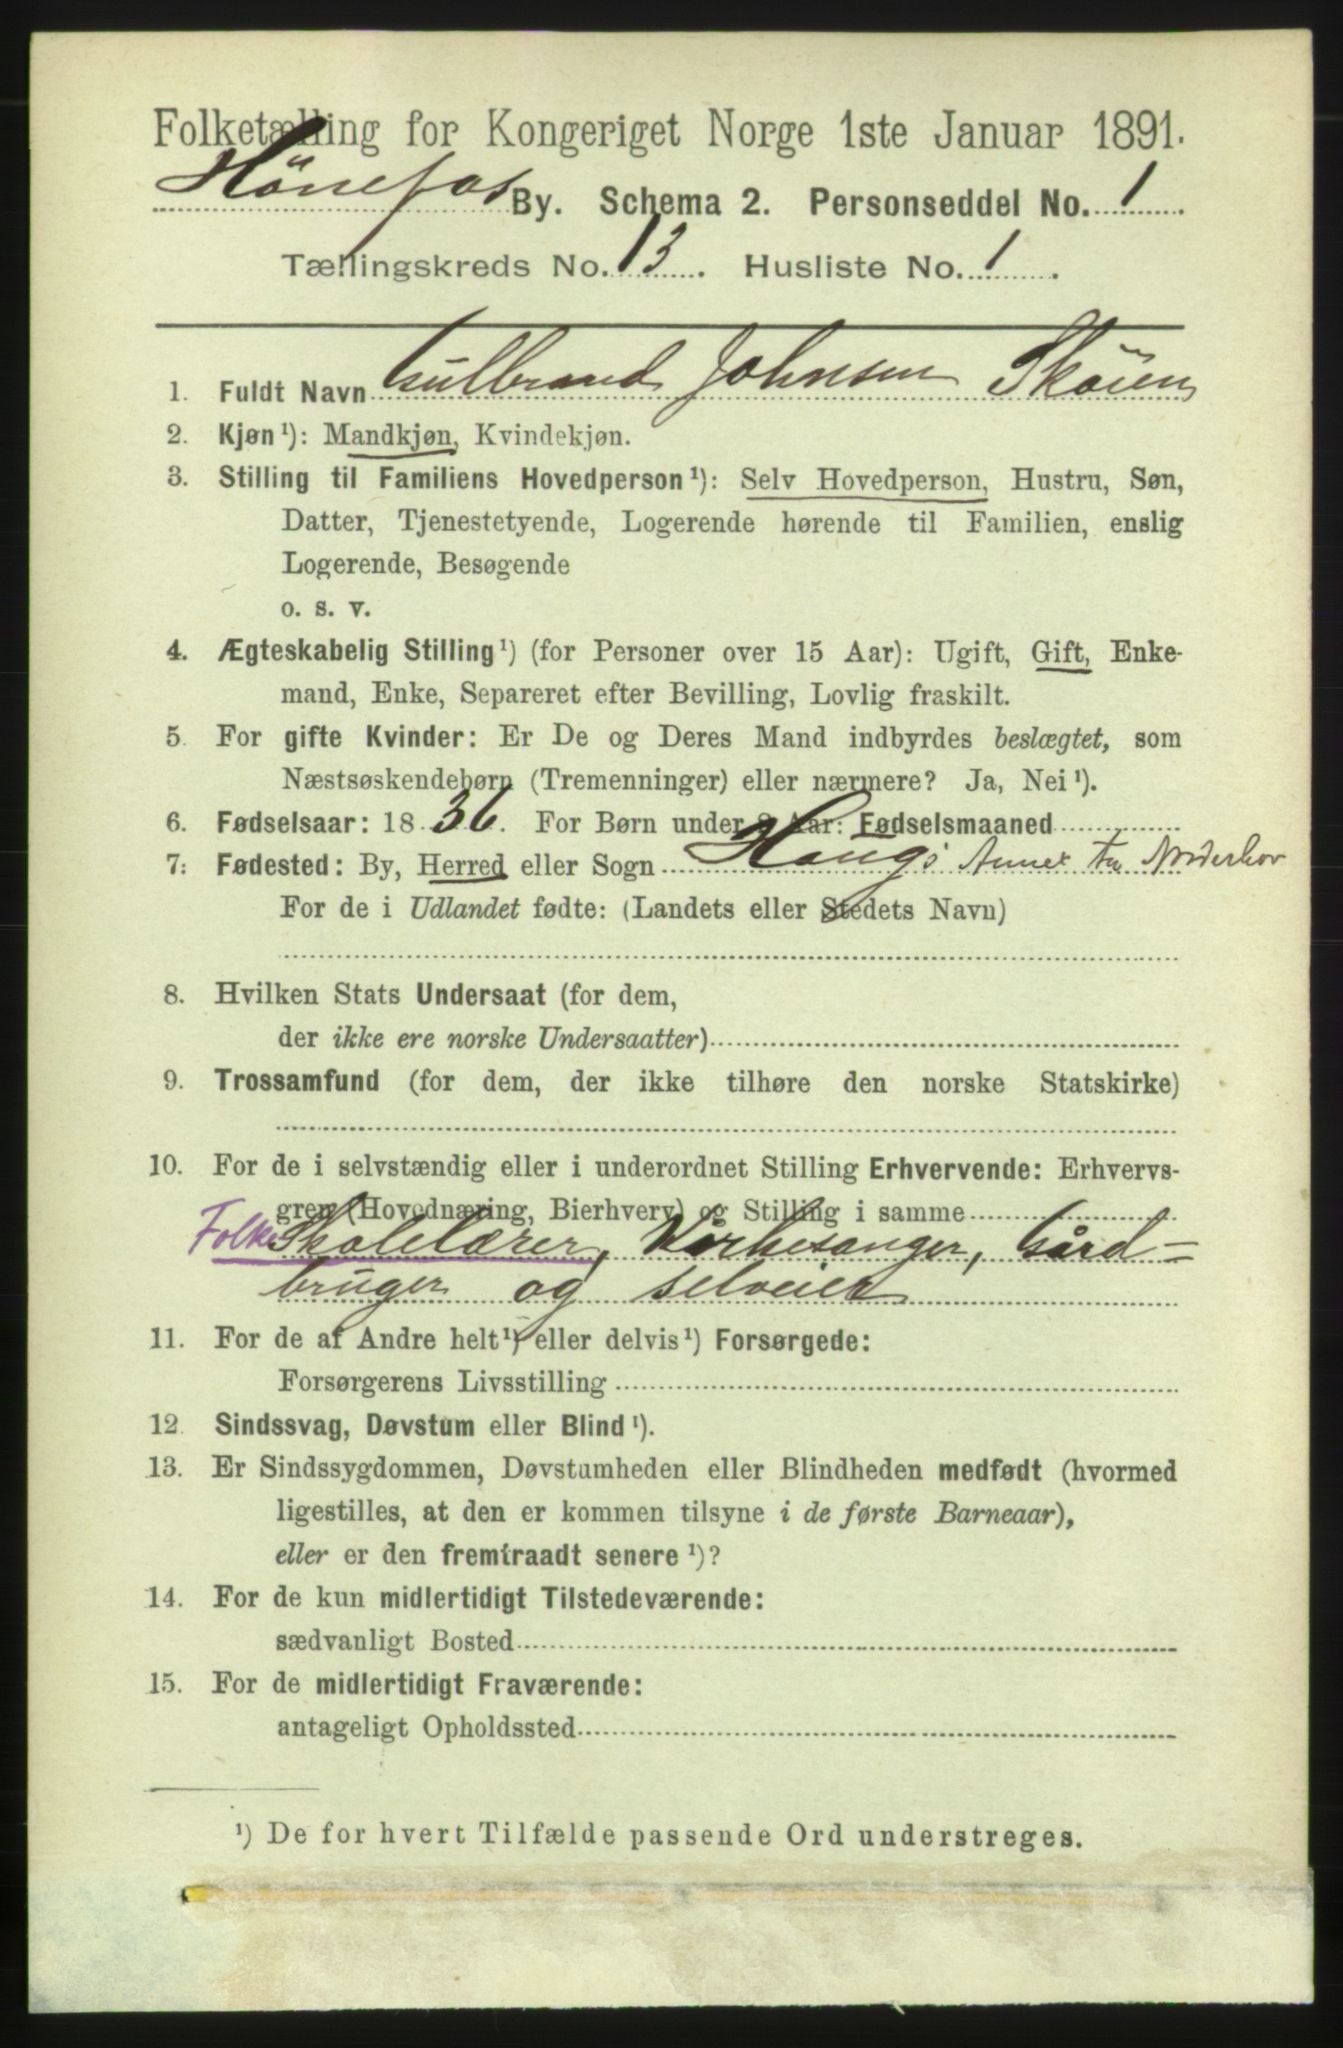 Folketælling for Kongeriget Norge 1ste Januar 1891.
Hönefos By. Schema 2. Personseddel No. 1
Tællingskreds No. 13. Husliste No. 1.
1. Fuldt Navn Gulbrand Johnsen Sköien
2. Kjøn ¹): Mandkjøn, Kvindekjøn.
3. Stilling til Familiens Hovedperson ¹): Selv Hovedperson, Hustru, Søn,
Datter, Tjenestetyende, Logerende hørende til Familien, enslig
Logerende, Besøgende
o. s. v.
4. Ægteskabelig Stilling ¹) (for Personer over 15 Aar): Ugift, Gift, Enke-
mand, Enke, Separeret efter Bevilling, Lovlig fraskilt.
5. For gifte Kvinder: Er De og Deres Mand indbyrdes beslægtet, som
Næstsøskendebørn (Tremenninger) eller nærmere? Ja, Nei ¹).
6. Fødselsaar: 1836. For Børn under 2 Aar: Fødselsmaaned
7: Fødested: By, Herred eller Sogn Haugs Annex til Norderhov
For de i Udlandet fødte: (Landets eller Stedets Navn)
8. Hvilken Stats Undersaat (for dem,
der ikke ere norske Undersaatter)
9. Trossamfund (for dem, der ikke tilhøre den norske Statskirke)
10. For de i selvstændig eller i underordnet Stilling Erhvervende: Erhvervs-
gren (Hovednæring, Bierhverv) og Stilling i samme
Folke Skolelærer, Kirkesanger, Gård-
bruger og selveier
11. For de af Andre helt ¹) eller delvis ¹) Forsørgede:
Forsørgerens Livsstilling
12. Sindssvag, Døvstum eller Blind ¹).
13. Er Sindssygdommen, Døvstumheden eller Blindheden medfødt (hvormed
ligestilles, at den er kommen tilsyne i de første Barneaar),
eller er den fremtraadt senere ¹)?
14. For de kun midlertidigt Tilstedeværende:
sædvanligt Bosted
15. For de midlertidigt Fraværende:
antageligt Opholdssted
¹) De for hvert Tilfælde passende Ord understreges.